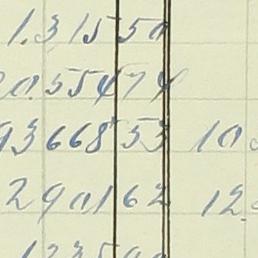 1.315 50
20.554 74
93668 53 10
2901 62 12.
1235 90